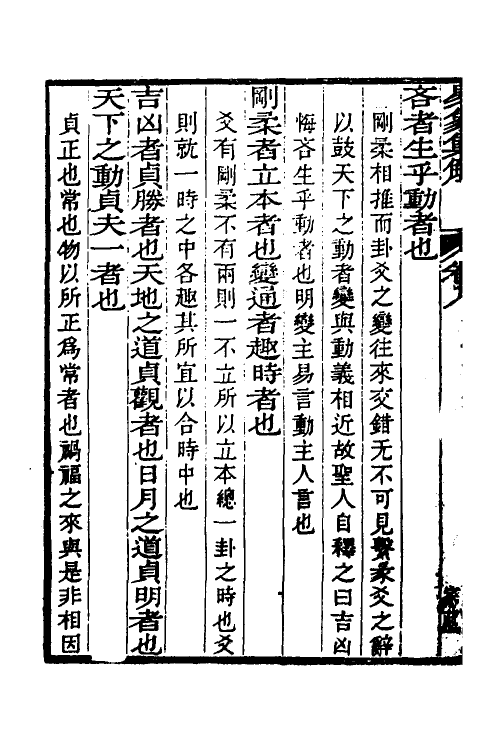 易象集解
卷八
吝者生乎動者也
剛柔相推而卦爻之變往來交錯无不可見繫彖爻之辭
以鼓天下之動者變與動義相近故聖人自釋之曰吉凶
悔吝生乎動者也明變主易言動主人言也
剛柔者立本者也變通者趣時者也
爻有剛柔不有兩則一不立所以立本總一卦之時也爻
則就一時之中各趣其所宜以合時中也
吉凶者貞勝者也天地之道貞觀者也日月之道貞明者也
天下之動貞夫一者也
貞正也常也物以所正爲常者也禍福之來與是非相因